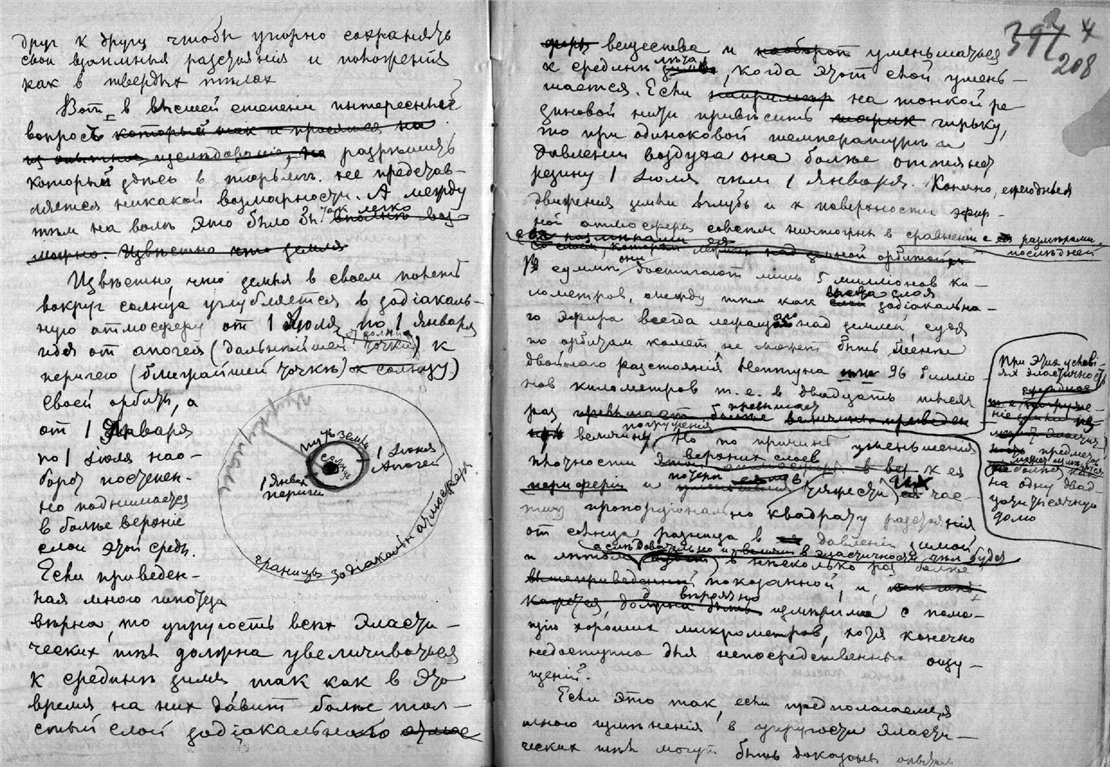 другъ к другу чтобы упорно сохранять
свои взаимныя разстоянія и положенія
как в твердых тѣлах
Вот в высшей степени интересный
вопросъ который
разрѣшить
который здѣсь в тюрьмѣ не представ-
ляется никакой возможности. А между
тѣм на волѣ это было бы так легко
можно. Извѣстно что земля
Извѣстно, что земля в своем полетѣ
вокруг солнца углубляется в зодіакаль-
ную атмосферу от 1 Июля по 1 Января
идя от апогея (дальнѣйшей от солнца точки) к
перигею (ближайшей точкѣ к солнцу)
своей орбиты, а
от 1 Января
по 1 Июля нао-
борот постепен-
но поднимается
в болѣе верхніе
слои этой среды.
Если приведен-
ная мною гипотеза
вѣрна, то упругость всѣх эласти-
ческих тѣл должна увеличиваться
к срединѣ зимы так как в это
время на них давит болѣе тол-
стый слой зодіакальнаго
Нептун
путь земли
солнце
1 Июля
Апогей
1 Январ
перигей
граница зодіакальн атмосферы
397
208
вещества и наоборот уменьшаться
к срединѣ лѣта, когда этот слой умень-
шается. Если например на тонкой ре-
зиновой нити привѣсить шарик гирьку,
то при одинаковой температурѣ и
давленіи воздуха она болѣе оттянет
резину 1 Июля чѣм 1 Января. Конечно, ежегодныя
движенія земли вглубь и к поверхности эфир-
ной атмосферы совсем ничтожны в сравненіи с ея размѣрами.
В суммѣ они достигают лишь 5 миллионов ки-
лометров, а между тѣм как слоя зодіакальна-
го эфира всегда лежащаго над землей, судя
по орбитам комет не может быть менѣе
двойного разстоянія Нептуна 96 билліо-
нов километров т. е. в двадцать тысяч
раз превышает
величину погруженія Но по причинѣ уменьшенія
плотности верхних слоев к ея
периферіи и потери тяжести час-
тиц пропорціонально квадрату разстоянія
от солнца разница в давленіи зимой
и лѣтом в нѣсколько раз болѣе
показанной, и
вѣроятно измѣрима с помо-
щью хороших микрометров, хотя конечно
недоступна для непосредственных ощу-
щений.
Если это так, если предполагаемыя
мною измѣненія в упругости эласти-
ческих тѣл могут быть доказаны опытами
При этих услові-
ях эластичность
на одну двад-
цати тысячную
долю